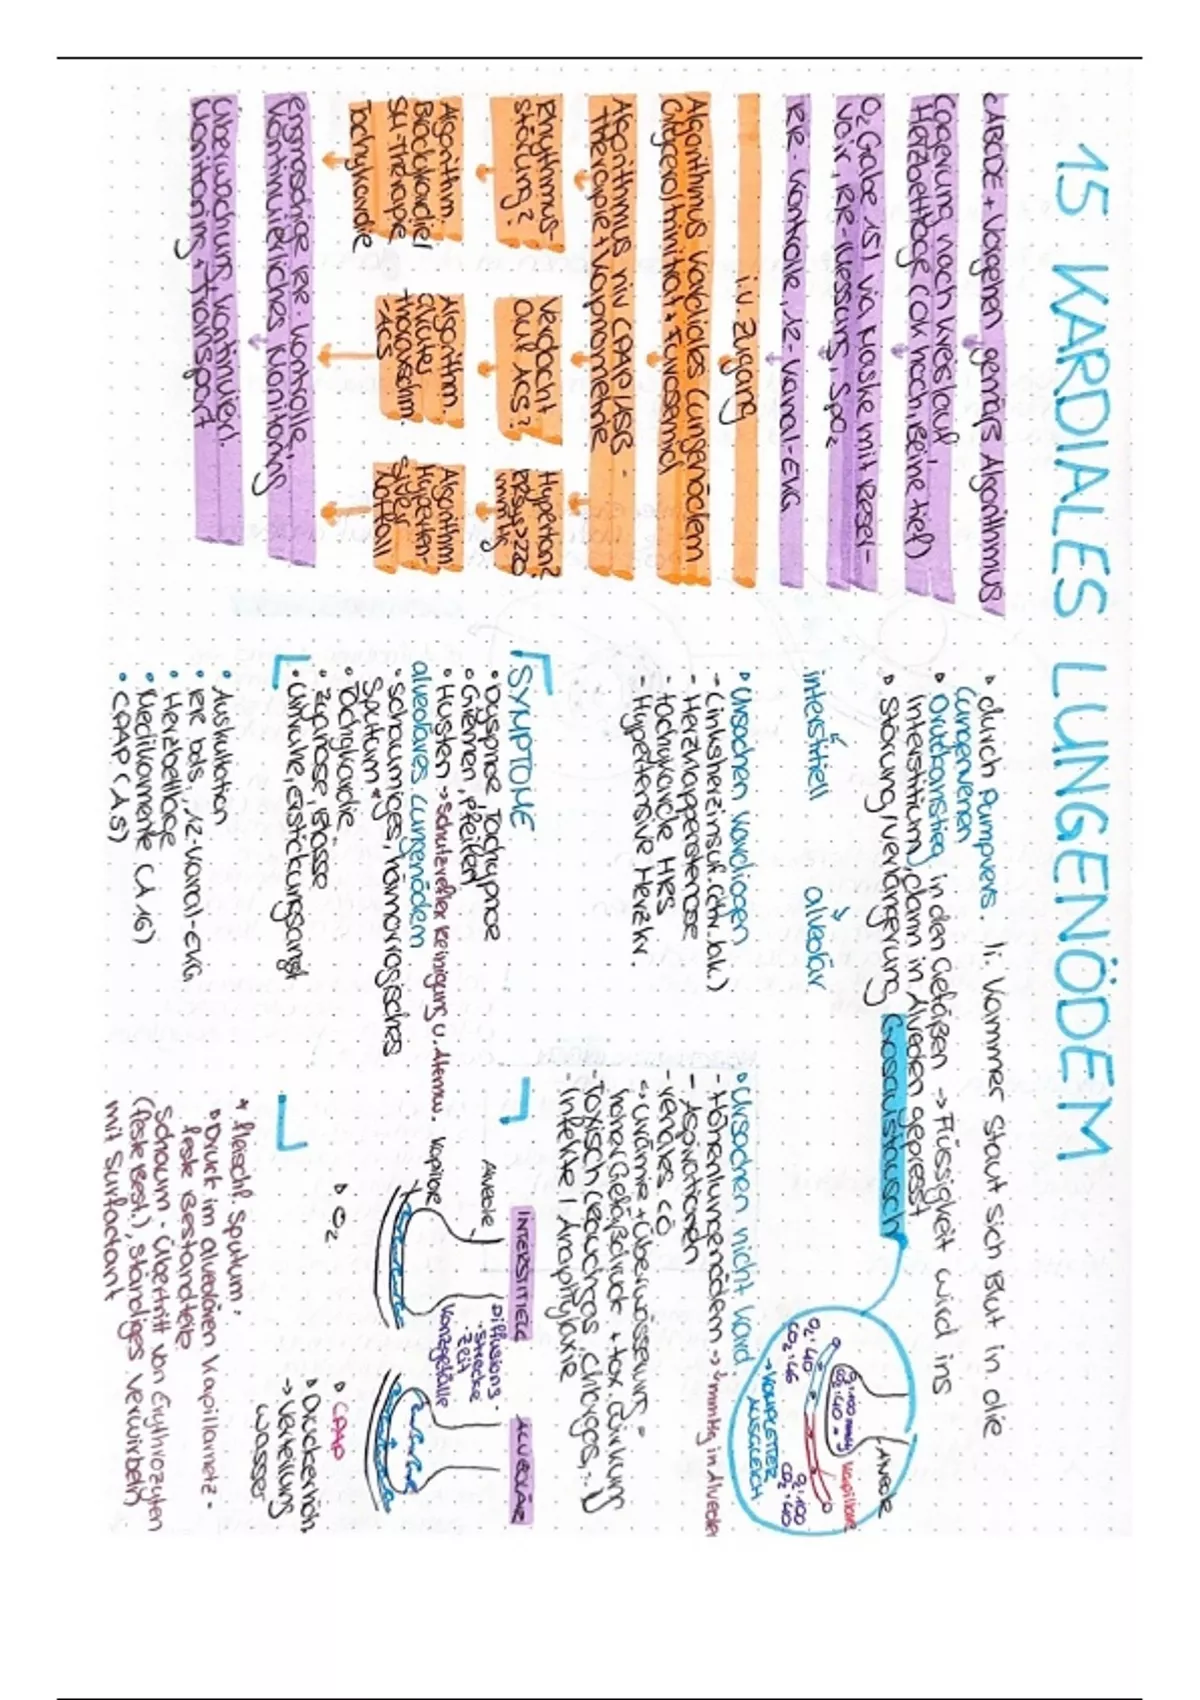 15 KARDIALES LUNGENÖDEM
cABCDE + Vorgehen gemäß Algorithmus
Lagerung nach Kreislauf,
Herzbettlage (OK hoch, Beine tief)
O₂ Gabe 15 l via Maske mit Reser-
voir, RR-Messung, SpO₂
RR-Kontrolle, 12-Kanal-EKG
i.v. Zugang
Algorithmus kardiales Lungenödem
Glycerolnitrat + Furosemid
Algorithmus niv CPAP VSS -
Therapie + Kapnometrie
Rhythmus-
störung?
Verdacht
auf ACS?
Hyperton?
RRsys > 220
mmHg
Algorithm.
Bradykardie/
SM-Therapie
Tachykardie
Algorithm.
akuter
Thoraxschm.
-ACS
Algorithm.
Hyperten-
siver
Notfall
Engmaschige RR-Kontrolle,
Kontinuierliches Monitoring
Überwachung, kontinuierl.
Monitoring + Transport
durch Pumpvers. li. Kammer staut sich Blut in die
Lungenvenen
Druckanstieg in den Gefäßen → Flüssigkeit wird ins
Interstitium, dann in Alveolen gepresst
Störung/Verlängerung Gasaustausch
interstitiell alveolär
Ursachen kardiogen
- Linksherzinsuf. (chr./ak.)
- Herzklappenstenose
- tachykarde HRS
- Hypertensive Herzkr.
Ursachen nicht kard.
- Höhenlungenödem → ↓ mmHg in Alveolen
- Aspirationen
- renales LÖ
↳ Urämie + Überwässerung =
hoher Gefäßdruck + tox. Wirkung
- Toxisch (Rauchgas, Chlorgas, ..)
- Infekte / Anaphylaxie
Alveole
Kapillare
O₂: 100 mmHg
CO₂: 40
O₂: 40
CO₂: 46
O₂: 100
CO₂: 40
→ KOMPLETTER
AUSGLEICH
SYMPTOME
• Dyspnoe, Tachypnoe
• Giemen, Pfeifen
• Husten → Schutzreflex Reinigung u. Atemw.
alveoläres Lungenödem
• schaumiges, hämorrhagisches
Sputum *
• Tachykardie
• Zyanose, Blässe
• Unruhe, Erstickungsangst
• Auskultation
• RR bds., 12-Kanal-EKG
• Herzbettlage
• Medikamente (A16)
• CPAP (A5)
INTERSTITIELL
Alveole
Kapillare
Diffusions-
• strecke
• zeit
Konzgefälle
▸ O₂
ALVEOLÄR
▸ CPAP
▸ Druckerhöh.
→ Verteilung
Wasser
* fleischf. Sputum:
▸ Druck im alveolären Kapillarnetz -
feste Bestandteile
Schaum - Übertritt von Erythrozyten
(feste Best.), ständiges Verwirbeln
mit Surfactant